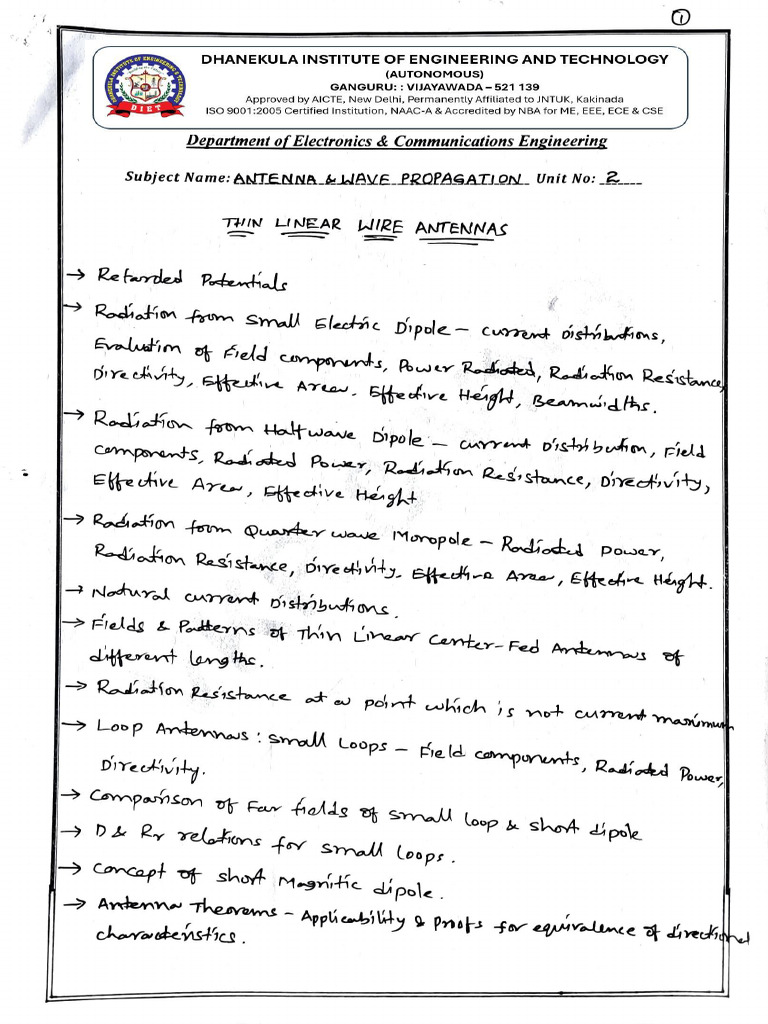 1
DHANEKULA INSTITUTE OF ENGINEERING AND TECHNOLOGY
(AUTONOMOUS)
GANGURU: : VIJAYAWADA – 521 139
Approved by AICTE, New Delhi, Permanently Affiliated to JNTUK, Kakinada
ISO 9001:2005 Certified Institution, NAAC-A & Accredited by NBA for ME, EEE, ECE & CSE
DHANEKULA INSTITUTE OF ENGINEERING & TECHNOLOGY
DIET
Department of Electronics & Communications Engineering
Subject Name: ANTENNA & WAVE PROPAGATION Unit No: 2
THIN LINEAR WIRE ANTENNAS
→ Retarded Potentials
→ Radiation from Small Electric Dipole – current distributions,
Evaluation of Field components, Power Radiated, Radiation Resistance,
Directivity, Effective Area, Effective Height, Beamwidths.
→ Radiation from Halfwave Dipole – current Distribution, Field
components, Radiated Power, Radiation Resistance, Directivity,
Effective Area, Effective Height
→ Radiation from Quarter wave Monopole – Radiated Power,
Radiation Resistance, Directivity, Effective Area, Effective Height.
→ Natural current Distributions.
→ Fields & Patterns of Thin Linear Center-Fed Antennas of
different lengths.
→ Radiation Resistance at a point which is not current maximum
→ Loop Antennas: Small Loops – Field components, Radiated Power,
Directivity.
→ Comparison of Far fields of small loop & short dipole
→ D & Rr relations for small loops.
→ Concept of short Magnitic dipole.
→ Antenna Theorems – Applicability & Proofs for equivalence of directional
characteristics.